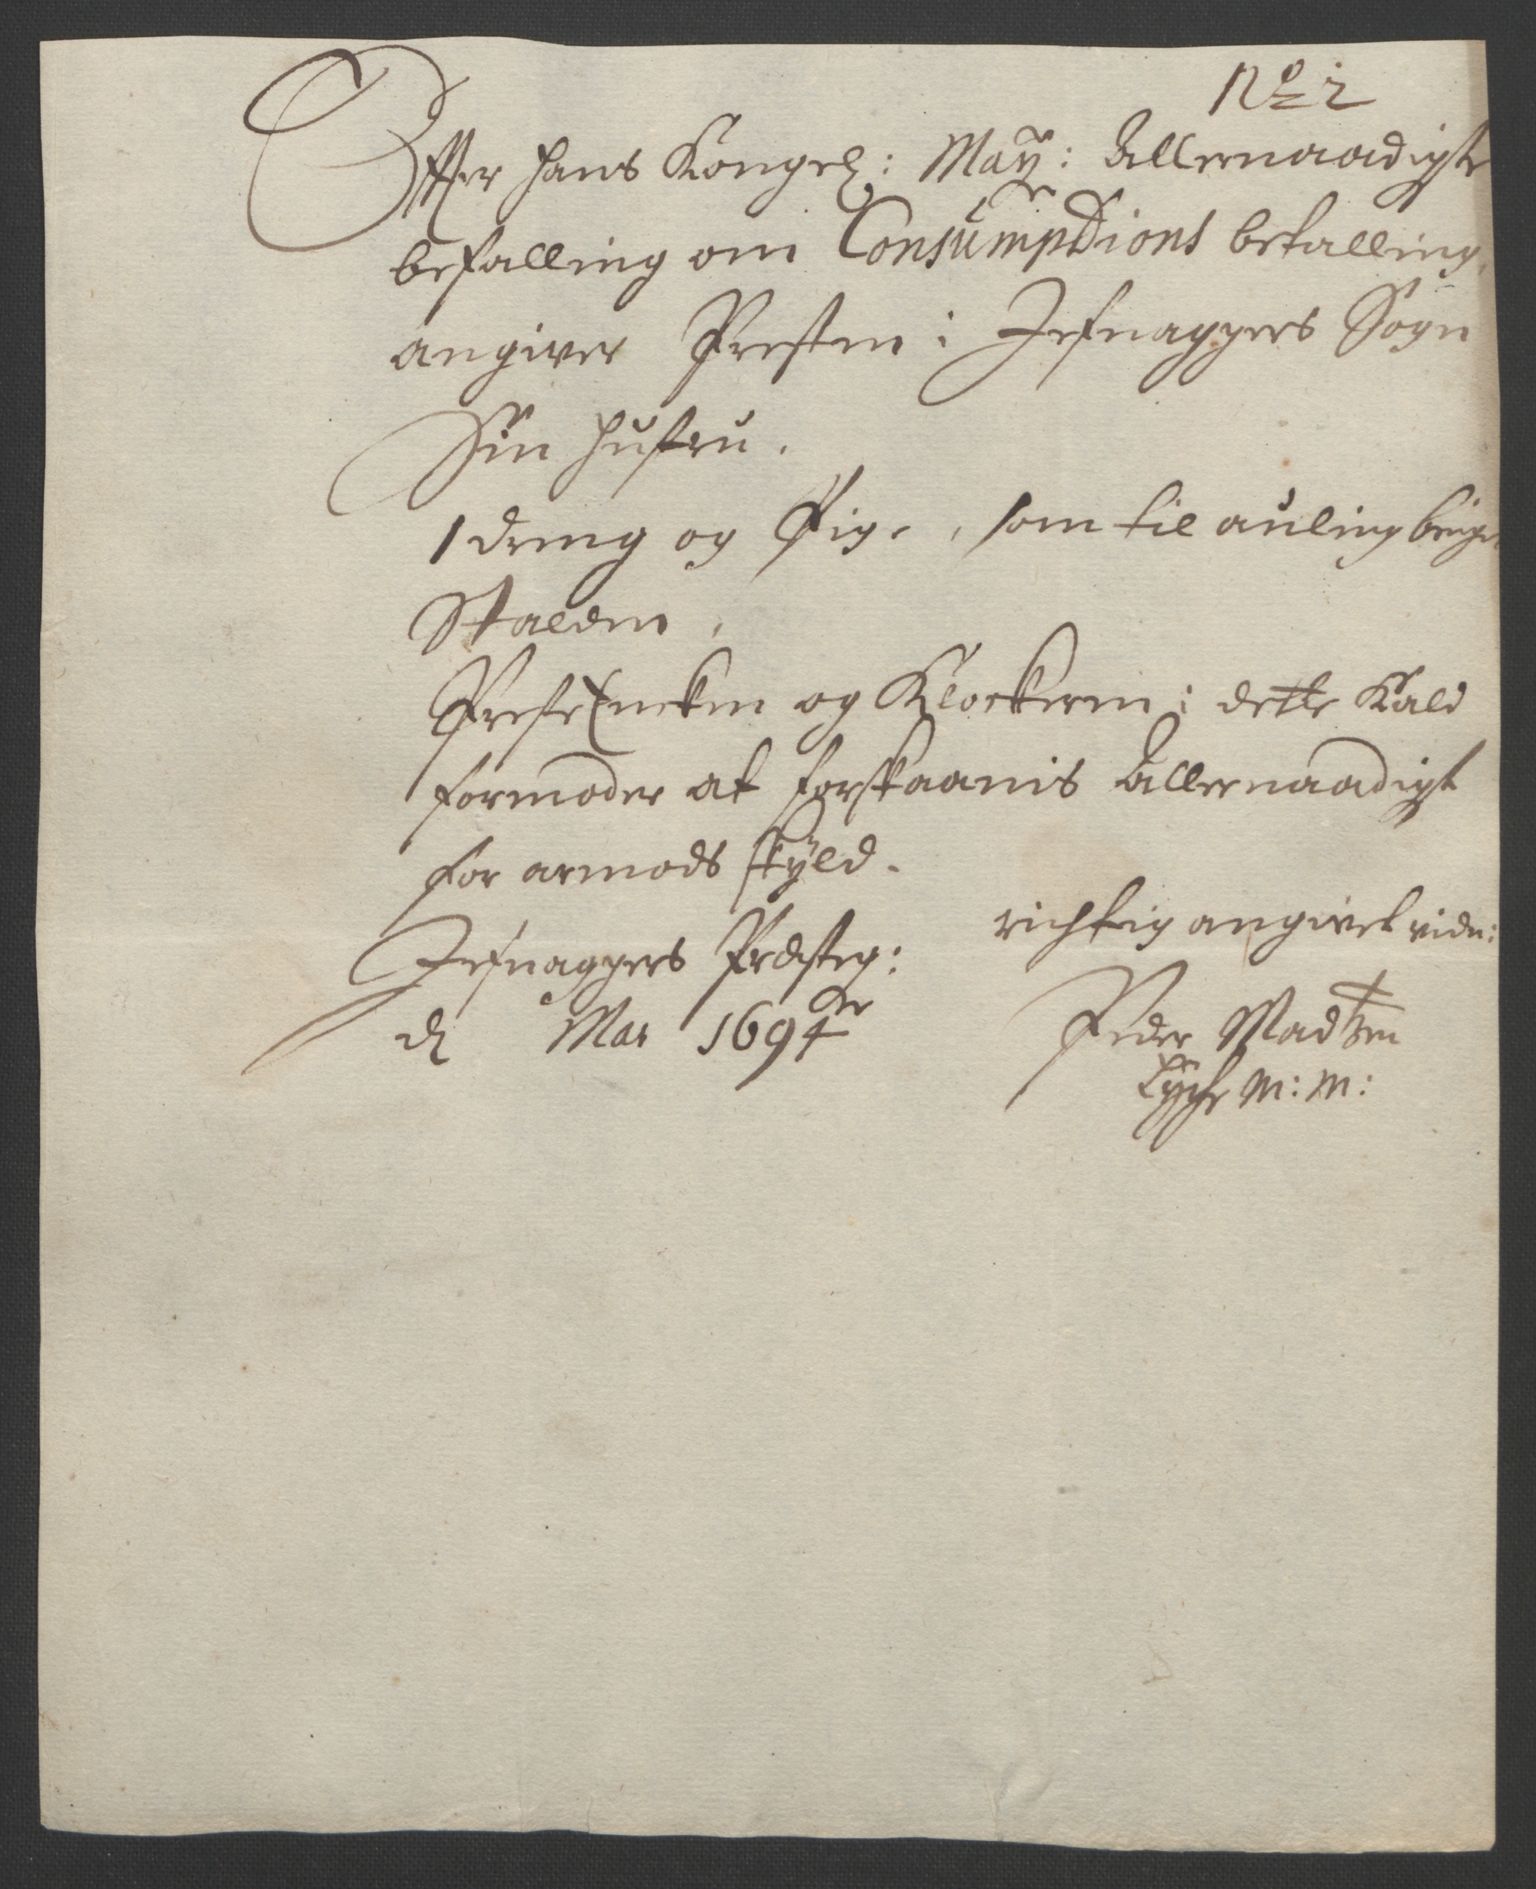 No 2
Effter Hans Kongel: May: Allernaadigste
befalling om Consumptions betalling,
angiver Presten i Jefnagers Sogn
Sin Hustru.
1 dreng og Pige, som til auling bruges
Stalden,
PresteEncken og Klockeren i dette Kald
formoder at forskaanis Allernaadigst
for armods skyld.
richtig angivet vidn:
Jefnagers Præsteg:
d Mar 1694
Peder Madtzen
Lyche M: M: